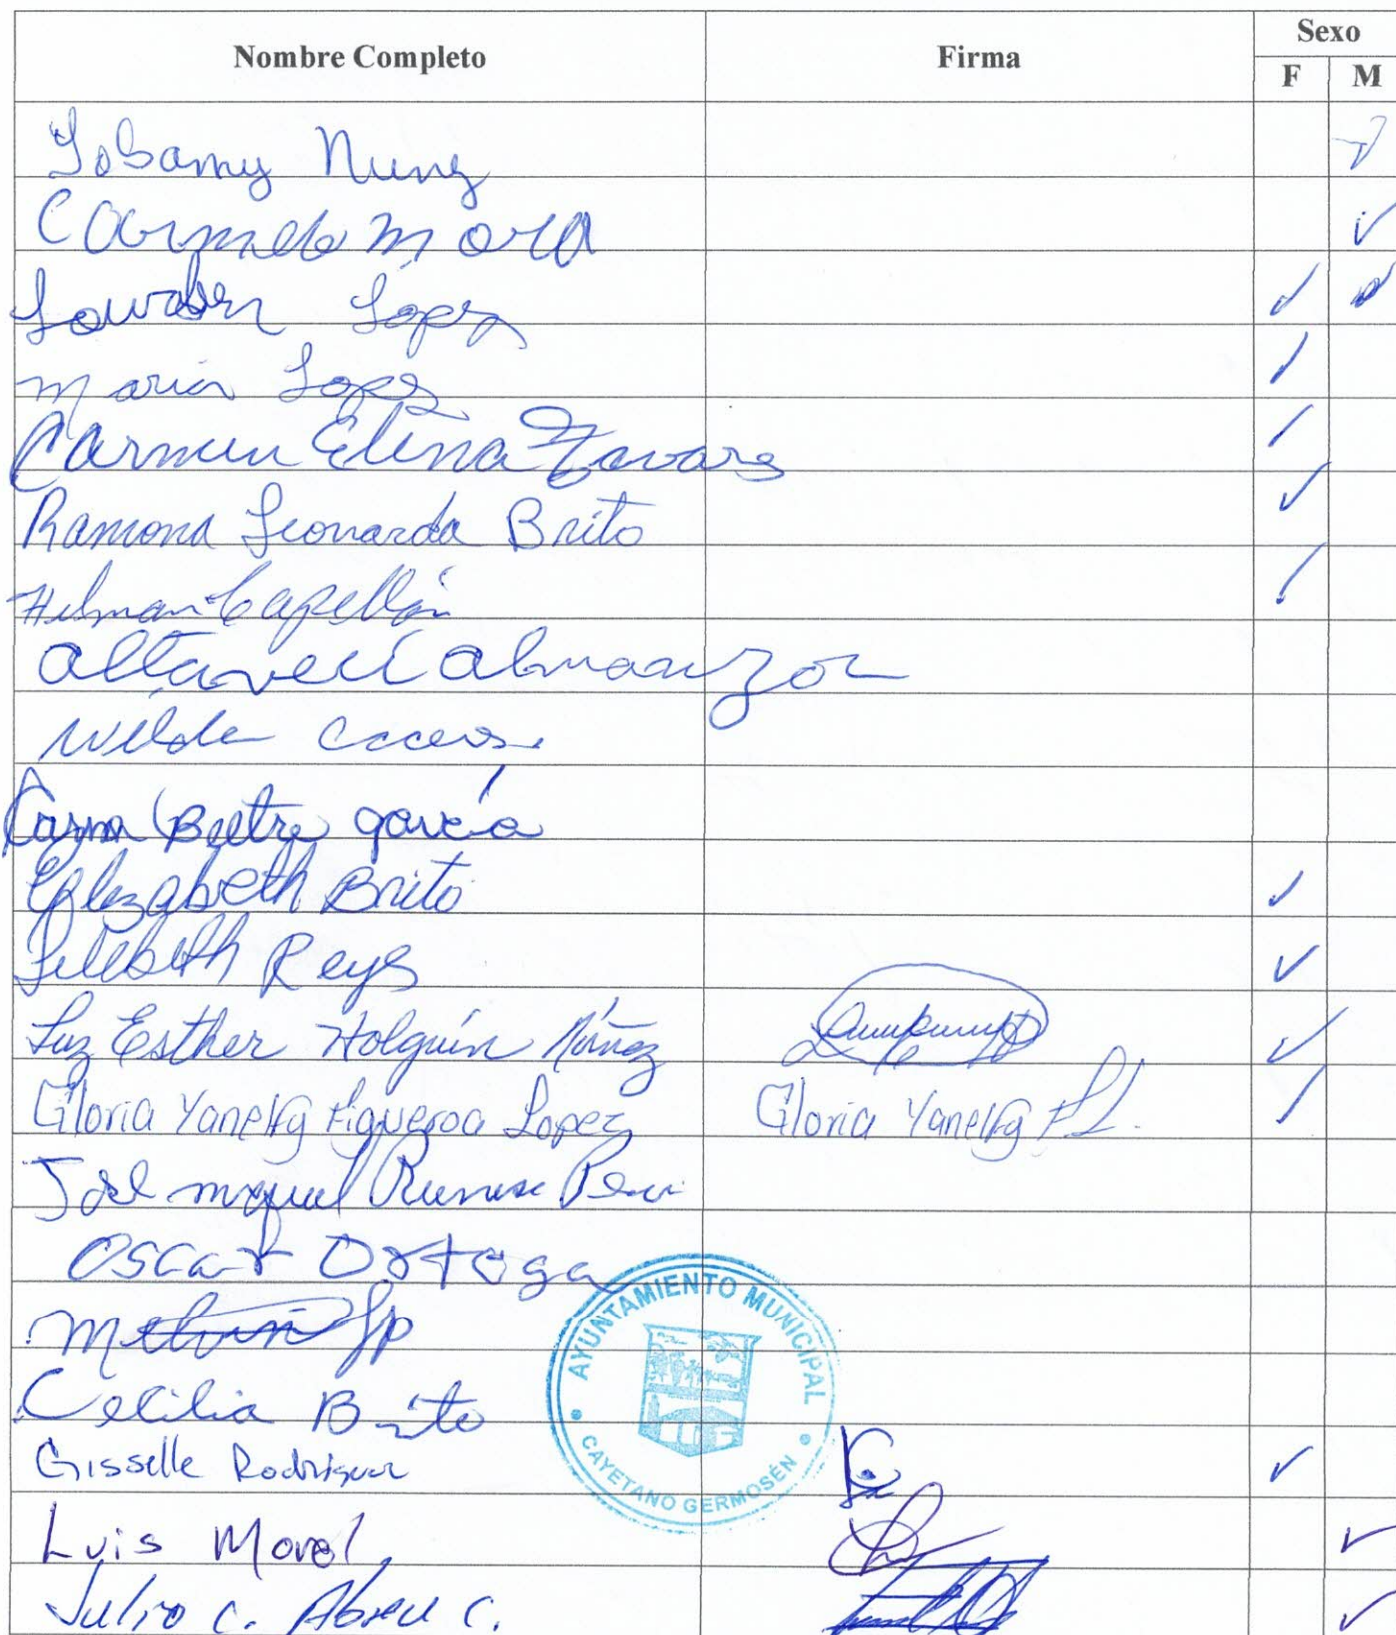 Nombre Completo Firma Sexo
F M
Yobamy Nuñez
Carmelo Mora
Lourdes Lopez
Maria Lopez
Carmen Elena Tavarez
Ramona Leonarda Brito
Hilman Capellán
Altaveli Almanzor
Wilda
Beltre García
Elizabeth Brito
Lilibeth Reyes
Luz Esther Holguín Núñez
Gloria Yanelkg Figueroa Lopez Gloria Yanelkg F.L.
Joel Miguel
Oscar Ortega
Melvin
Cecilia Brito
Gisselle Rodriguez
Luis Morel
Julio C. Abreu C.
AYUNTAMIENTO MUNICIPAL
CAYETANO GERMOSÉN